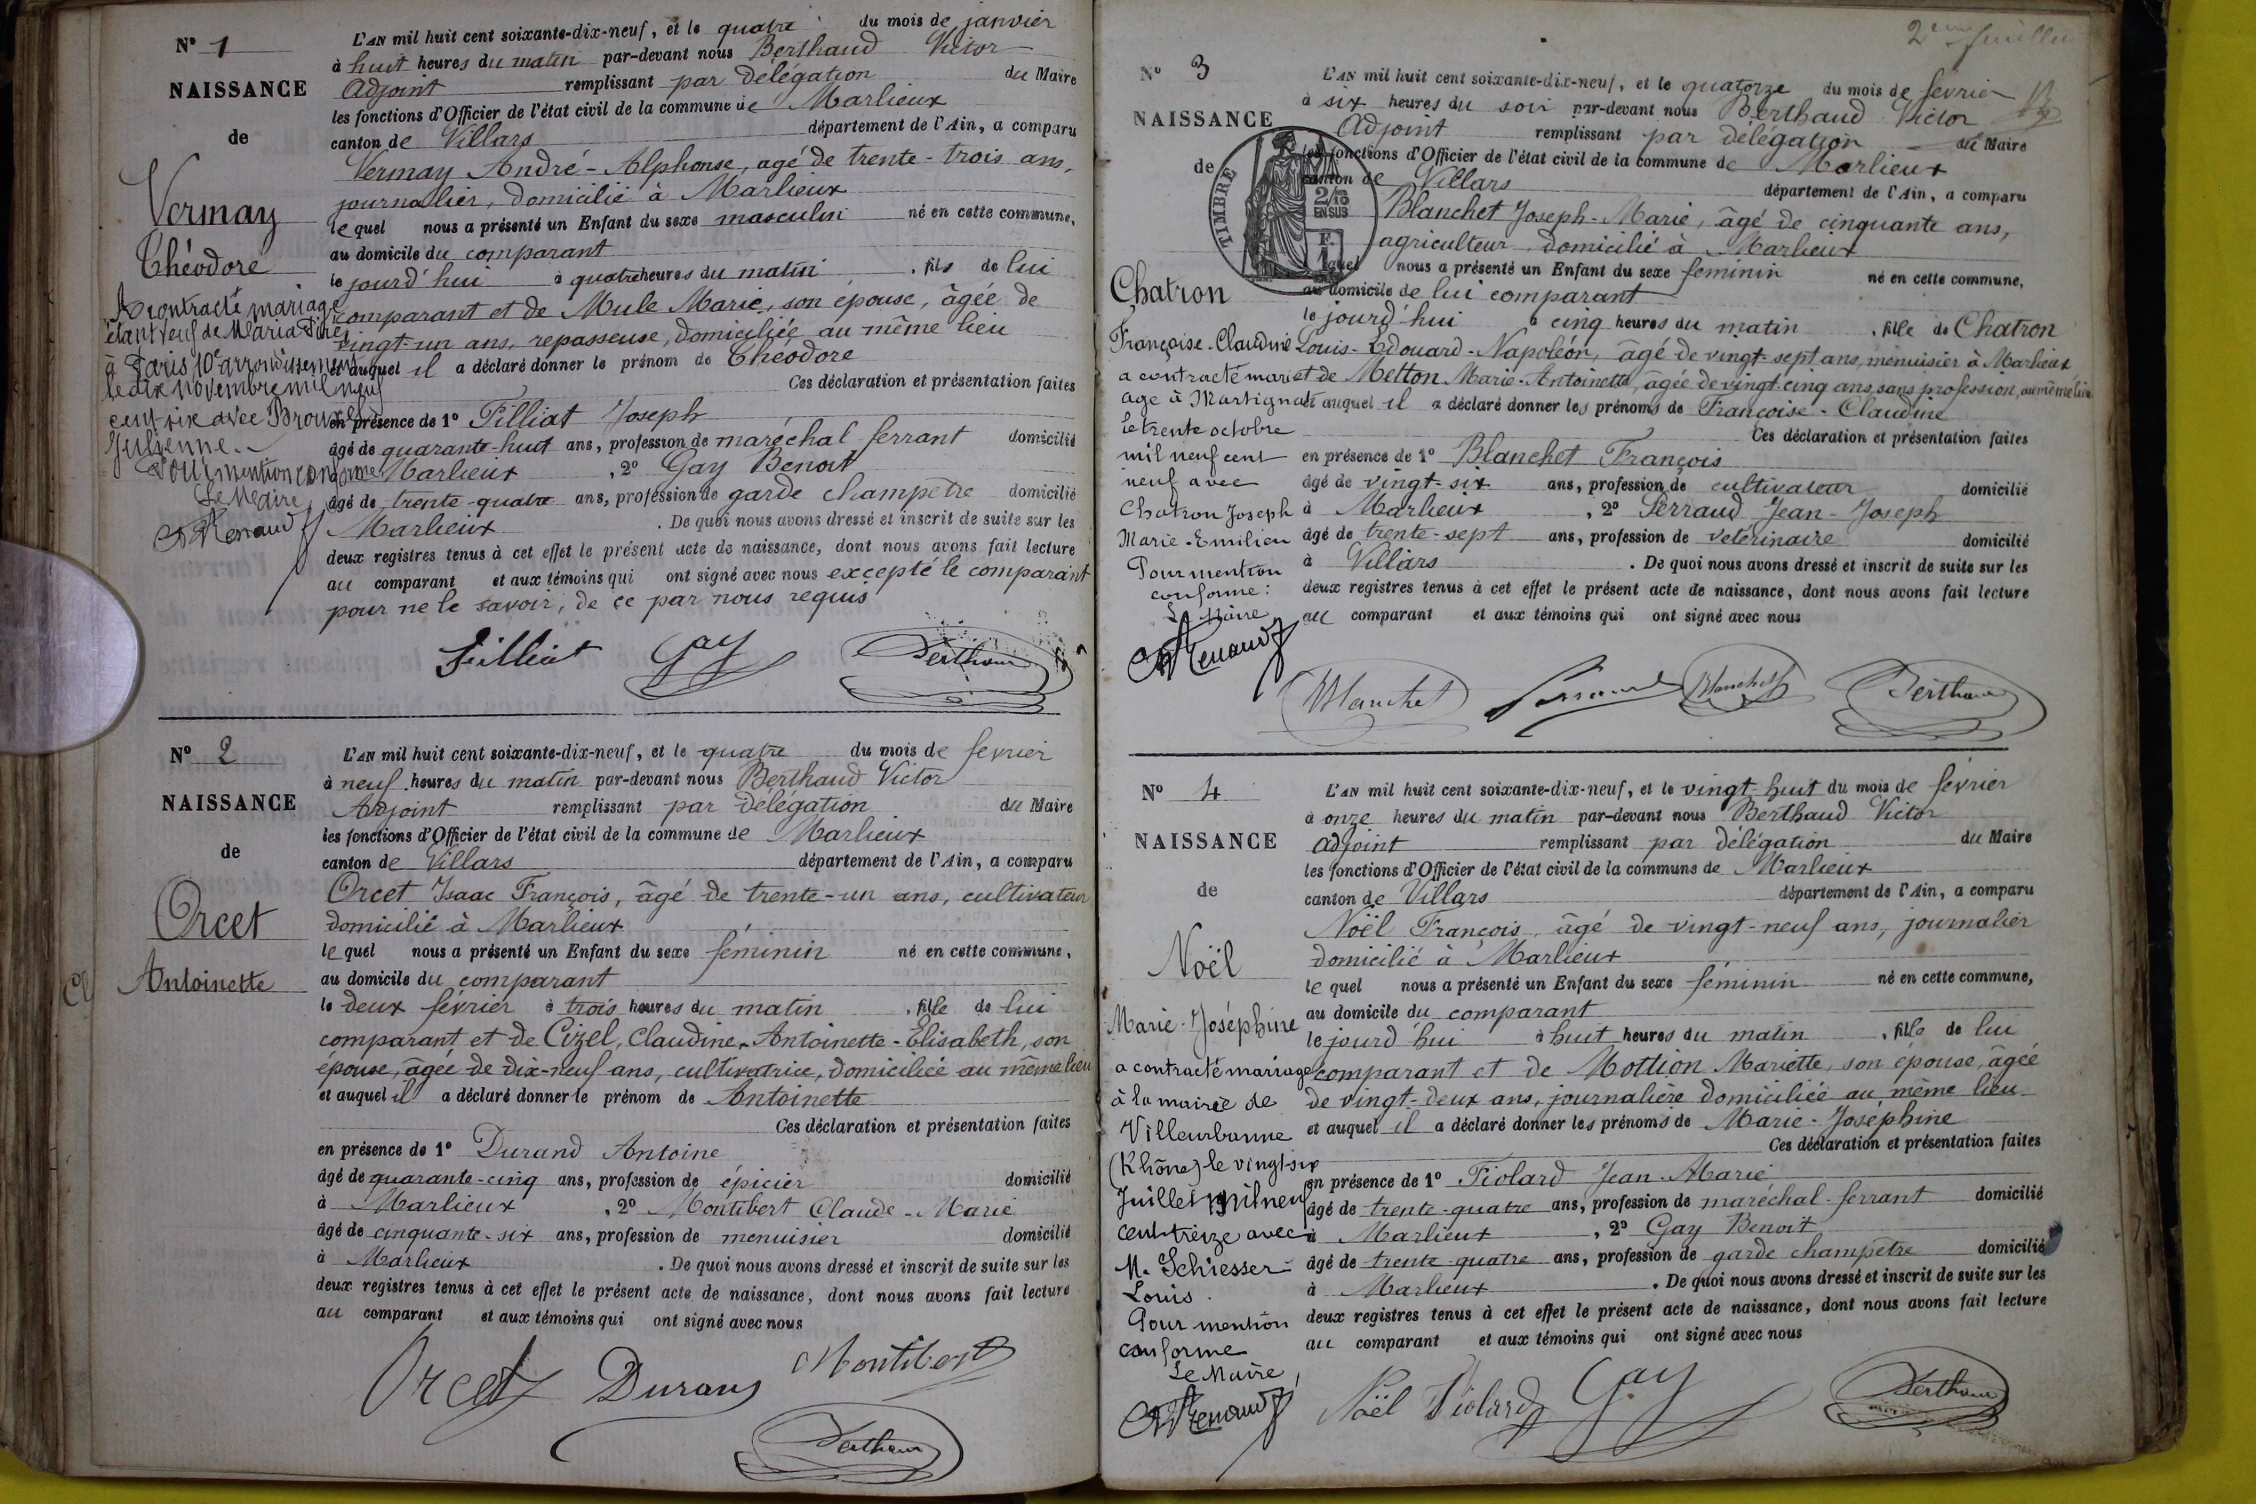 N° 1
NAISSANCE
de
Vermay
Théodore
A contracté mariage
étant veuf de Maria
à Paris 10e arrondissement
le dix novembre mil neuf
cent six avec
Julienne.
Pour mention conforme
Le Maire,
Renaud
L'AN mil huit cent soixante-dix-neuf, et le quatre du mois de janvier
à huit heures du matin par-devant nous Berthaud Victor
Adjoint remplissant par délégation du Maire
les fonctions d'Officier de l'état civil de la commune de Marlieux
canton de Villars département de l'Ain, a comparu
Vermay André-Alphonse, agé de trente-trois ans,
journalier, domicilié à Marlieux
lequel nous a présenté un Enfant du sexe masculin né en cette commune,
au domicile du comparant
le jourd'hui à quatre heures du matin, fils de lui
comparant et de Mule Marie, son épouse, âgée de
vingt-un ans, repasseuse, domiciliée au même lieu
et auquel il a déclaré donner le prénom de Théodore
Ces déclaration et présentation faites
en présence de 1° Filliat Joseph
âgé de quarante-huit ans, profession de maréchal ferrant domicilié
Marlieux, 2° Gay Benoit
âgé de trente-quatre ans, profession de garde champêtre domicilié
Marlieux. De quoi nous avons dressé et inscrit de suite sur les
deux registres tenus à cet effet le présent acte de naissance, dont nous avons fait lecture
au comparant et aux témoins qui ont signé avec nous excepté le comparant
pour ne le savoir, de ce par nous requis
Filliat Gay Berthaud
N° 2
NAISSANCE
de
Orcet
Antoinette
L'AN mil huit cent soixante-dix-neuf, et le quatre du mois de fevrier
à neuf heures du matin par-devant nous Berthaud Victor
Adjoint remplissant par délégation du Maire
les fonctions d'Officier de l'état civil de la commune de Marlieux
canton de Villars département de l'Ain, a comparu
Orcet Isaac François, âgé de trente-un ans, cultivateur
domicilié à Marlieux
lequel nous a présenté un Enfant du sexe féminin né en cette commune,
au domicile du comparant
le deux février à trois heures du matin, fille de lui
comparant et de Cizel, Claudine-Antoinette-Elisabeth, son
épouse, âgée de dix-neuf ans, cultivatrice, domiciliée au même lieu
et auquel il a déclaré donner le prénom de Antoinette
Ces déclaration et présentation faites
en présence de 1° Durand Antoine
âgé de quarante-cinq ans, profession de épicier domicilié
à Marlieux, 2° Montibert Claude-Marie
âgé de cinquante-six ans, profession de menuisier domicilié
à Marlieux. De quoi nous avons dressé et inscrit de suite sur les
deux registres tenus à cet effet le présent acte de naissance, dont nous avons fait lecture
au comparant et aux témoins qui ont signé avec nous
Orcet Durand Montibert
Berthaud
2eme feuillet
N° 3
NAISSANCE
de
TIMBRE
2/10
EN SUS
Chatron
Françoise-Claudine
a contracté mari
age à Martignat
le trente octobre
mil neuf cent
neuf avec
Chatron Joseph
Marie-Emilien
Pour mention
conforme:
Le Maire
Renaud
L'AN mil huit cent soixante-dix-neuf, et le quatorze du mois de février
à six heures du soir par-devant nous Berthaud Victor
Adjoint remplissant par délégation du Maire
les fonctions d'Officier de l'état civil de la commune de Marlieux
canton de Villars département de l'Ain, a comparu
Blanchet Joseph-Marie, âgé de cinquante ans,
agriculteur domicilié à Marlieux
lequel nous a présenté un Enfant du sexe féminin né en cette commune,
au domicile de lui comparant
le jourd'hui à cinq heures du matin, fille de Chatron
Louis-Edouard-Napoléon, âgé de vingt-sept ans, menuisier à Marlieux
et de Metton Marie-Antoinette, âgée de vingt-cinq ans, sans profession, au même lieu
et auquel il a déclaré donner les prénoms de Françoise-Claudine
Ces déclaration et présentation faites
en présence de 1° Blanchet François
âgé de vingt-six ans, profession de cultivateur domicilié
à Marlieux, 2° Perraud Jean-Joseph
âgé de trente-sept ans, profession de vétérinaire domicilié
à Villars. De quoi nous avons dressé et inscrit de suite sur les
deux registres tenus à cet effet le présent acte de naissance, dont nous avons fait lecture
au comparant et aux témoins qui ont signé avec nous
Blanchet Perraud Blanchet Berthaud
N° 4
NAISSANCE
de
Noël
Marie-Joséphine
a contracté mariage
à la mairie de
Villeurbanne
(Rhône) le vingt-six
Juillet mil neuf
cent treize avec
M. Schiesser
Louis.
Pour mention
conforme
Le Maire,
Renaud
L'AN mil huit cent soixante-dix-neuf, et le vingt-huit du mois de février
à onze heures du matin par-devant nous Berthaud Victor
adjoint remplissant par délégation du Maire
les fonctions d'Officier de l'état civil de la commune de Marlieux
canton de Villars département de l'Ain, a comparu
Noël François, âgé de vingt-neuf ans, journalier
domicilié à Marlieux
lequel nous a présenté un Enfant du sexe féminin né en cette commune,
au domicile du comparant
le jourd'hui à huit heures du matin, fille de lui
comparant et de Mottion Mariette, son épouse, âgée
de vingt-deux ans, journalière domiciliée au même lieu
et auquel il a déclaré donner les prénoms de Marie-Joséphine
Ces déclaration et présentation faites
en présence de 1° Fiolard Jean-Marie
âgé de trente-quatre ans, profession de maréchal-ferrant domicilié
à Marlieux, 2° Gay Benoit
âgé de trente quatre ans, profession de garde champêtre domicilié
à Marlieux. De quoi nous avons dressé et inscrit de suite sur les
deux registres tenus à cet effet le présent acte de naissance, dont nous avons fait lecture
au comparant et aux témoins qui ont signé avec nous
Noël Fiolard Gay Berthaud